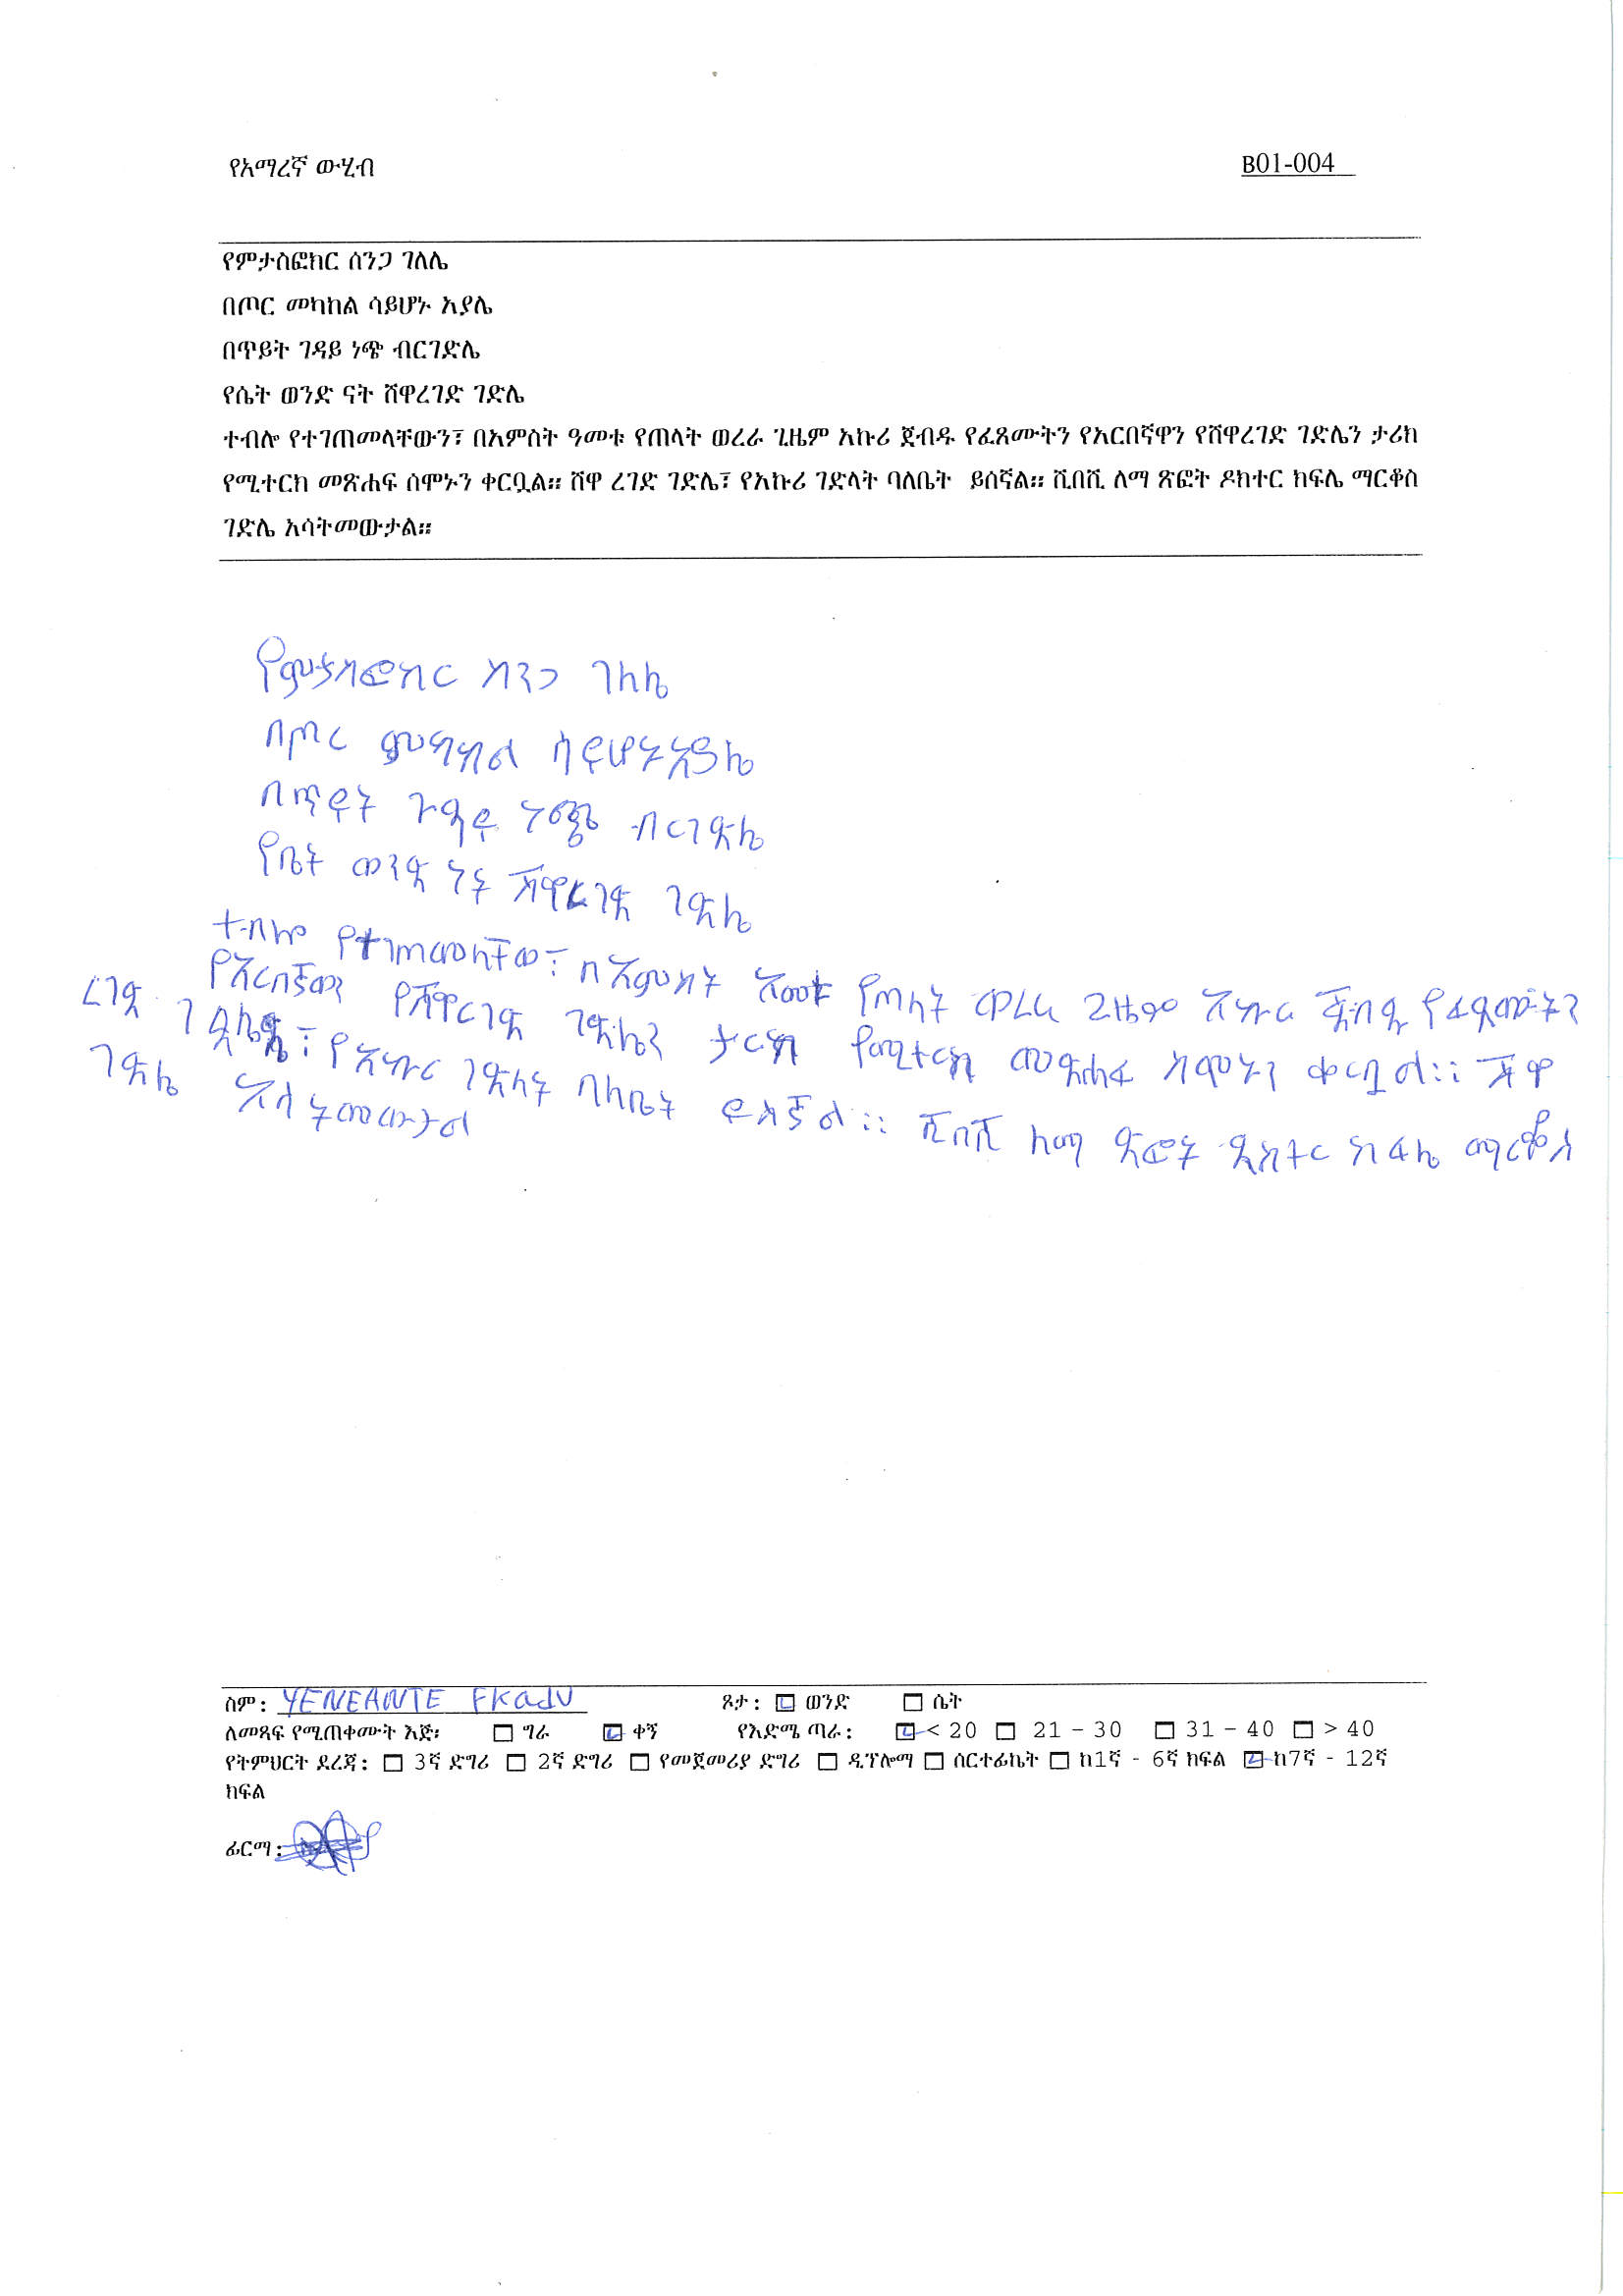 የአማረኛ ውሂብ B01-004
የምታስፎክር ሰንጋ ገለሌ
በጦር መካከል ሳይሆኑ አያሌ
በጥይት ገዳይ ነጭ ብርገድሌ
የሴት ወንድ ናት ሸዋረገድ ገድሌ
ተብሎ የተገጠመላቸውን፣ በአምስት ዓመቱ የጠላት ወረራ ጊዜም አኩሪ ጀብዱ የፈጸሙትን የአርበኛዋን የሸዋረገድ ገድሌን ታሪክ
የሚተርክ መጽሐፍ ሰሞኑን ቀርቧል። ሸዋ ረገድ ገድሌ፣ የአኩሪ ገድላት ባለቤት ይሰኛል። ሺበሺ ለማ ጽፎት ዶክተር ክፍሌ ማርቆስ
ገድሌ አሳትመውታል።
የምታስፎክር ሰንጋ ገለሌ
በጦር ምካከል ሳይሆኑ አያሌ
በጥይት ጉዳይ ነጭ ብርገድሌ
የሴት ወንድ ነት ሸዋረገድ ገድሌ
ተብሎ የተገጠመላቸው፣ በአምስት አመቱ የጠላት ወረራ ጊዜም አኩሪ ጀብዱ የፈጸሙትን
የአርበኛዋን የሸዋረገድ ገድሌን ታርክ የሚተርክ መጽሐፍ ሰሞኑን ቀርቧል። ሸዋ
ረገድ ገድሌ፣ የአኩሪ ገድላት ባለቤት ይሰኛል። ሺበሺ ለማ ጽፎት ዶክተር ክፍሌ ማርቆስ
ገድሌ አሳትመውታል
ስም: YENEANTE FKadU ጾታ: ወንድ ሴት
ለመጻፍ የሚጠቀሙት እጅ፡ ግራ ቀኝ የእድሜ ጣራ: < 20 21 – 30 31 – 40 > 40
የትምህርት ደረጃ: 3ኛ ድግሪ 2ኛ ድግሪ የመጀመሪያ ድግሪ ዲፕሎማ ሰርተፊኬት ከ1ኛ - 6ኛ ክፍል ከ7ኛ - 12ኛ
ክፍል
ፊርማ: